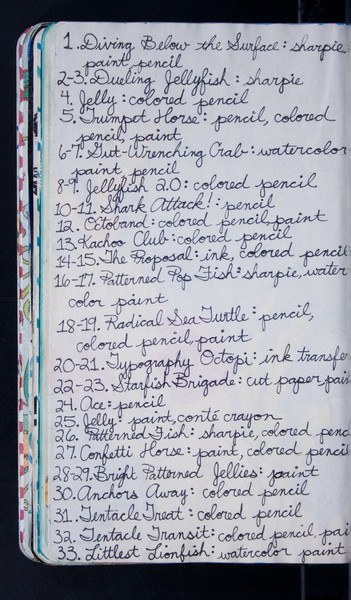 1. Diving Below the Surface: sharpie
paint, pencil
2-3. Dueling Jellyfish: sharpie
4. Jelly: colored pencil
5. Trumpet Horse: pencil, colored
pencil, paint
6-7. Gut-Wrenching Crab: watercolor
paint, pencil
8-9. Jellyfish 2.0: colored pencil
10-11. Shark Attack!: pencil
12. Octoband: colored pencil, paint
13. Kachoo Club: colored pencil
14-15. The Proposal: ink, colored pencil
16-17. Patterned Pop Fish: sharpie, water
color paint
18-19. Radical Sea Turtle: pencil,
colored pencil, paint
20-21. Typography Octopi: ink transfer
22-23. Starfish Brigade: cut paper, pain
24. Ace: pencil
25. Jelly: paint, conté crayon
26. Patterned Fish: sharpie, colored penc
27. Confetti Horse: paint, colored pencil
28-29. Bright Patterned Jellies: paint
30. Anchors Away: colored pencil
31. Tentacle Treat: colored pencil
32. Tentacle Transit: colored pencil, pai
33. Littlest Lionfish: watercolor paint